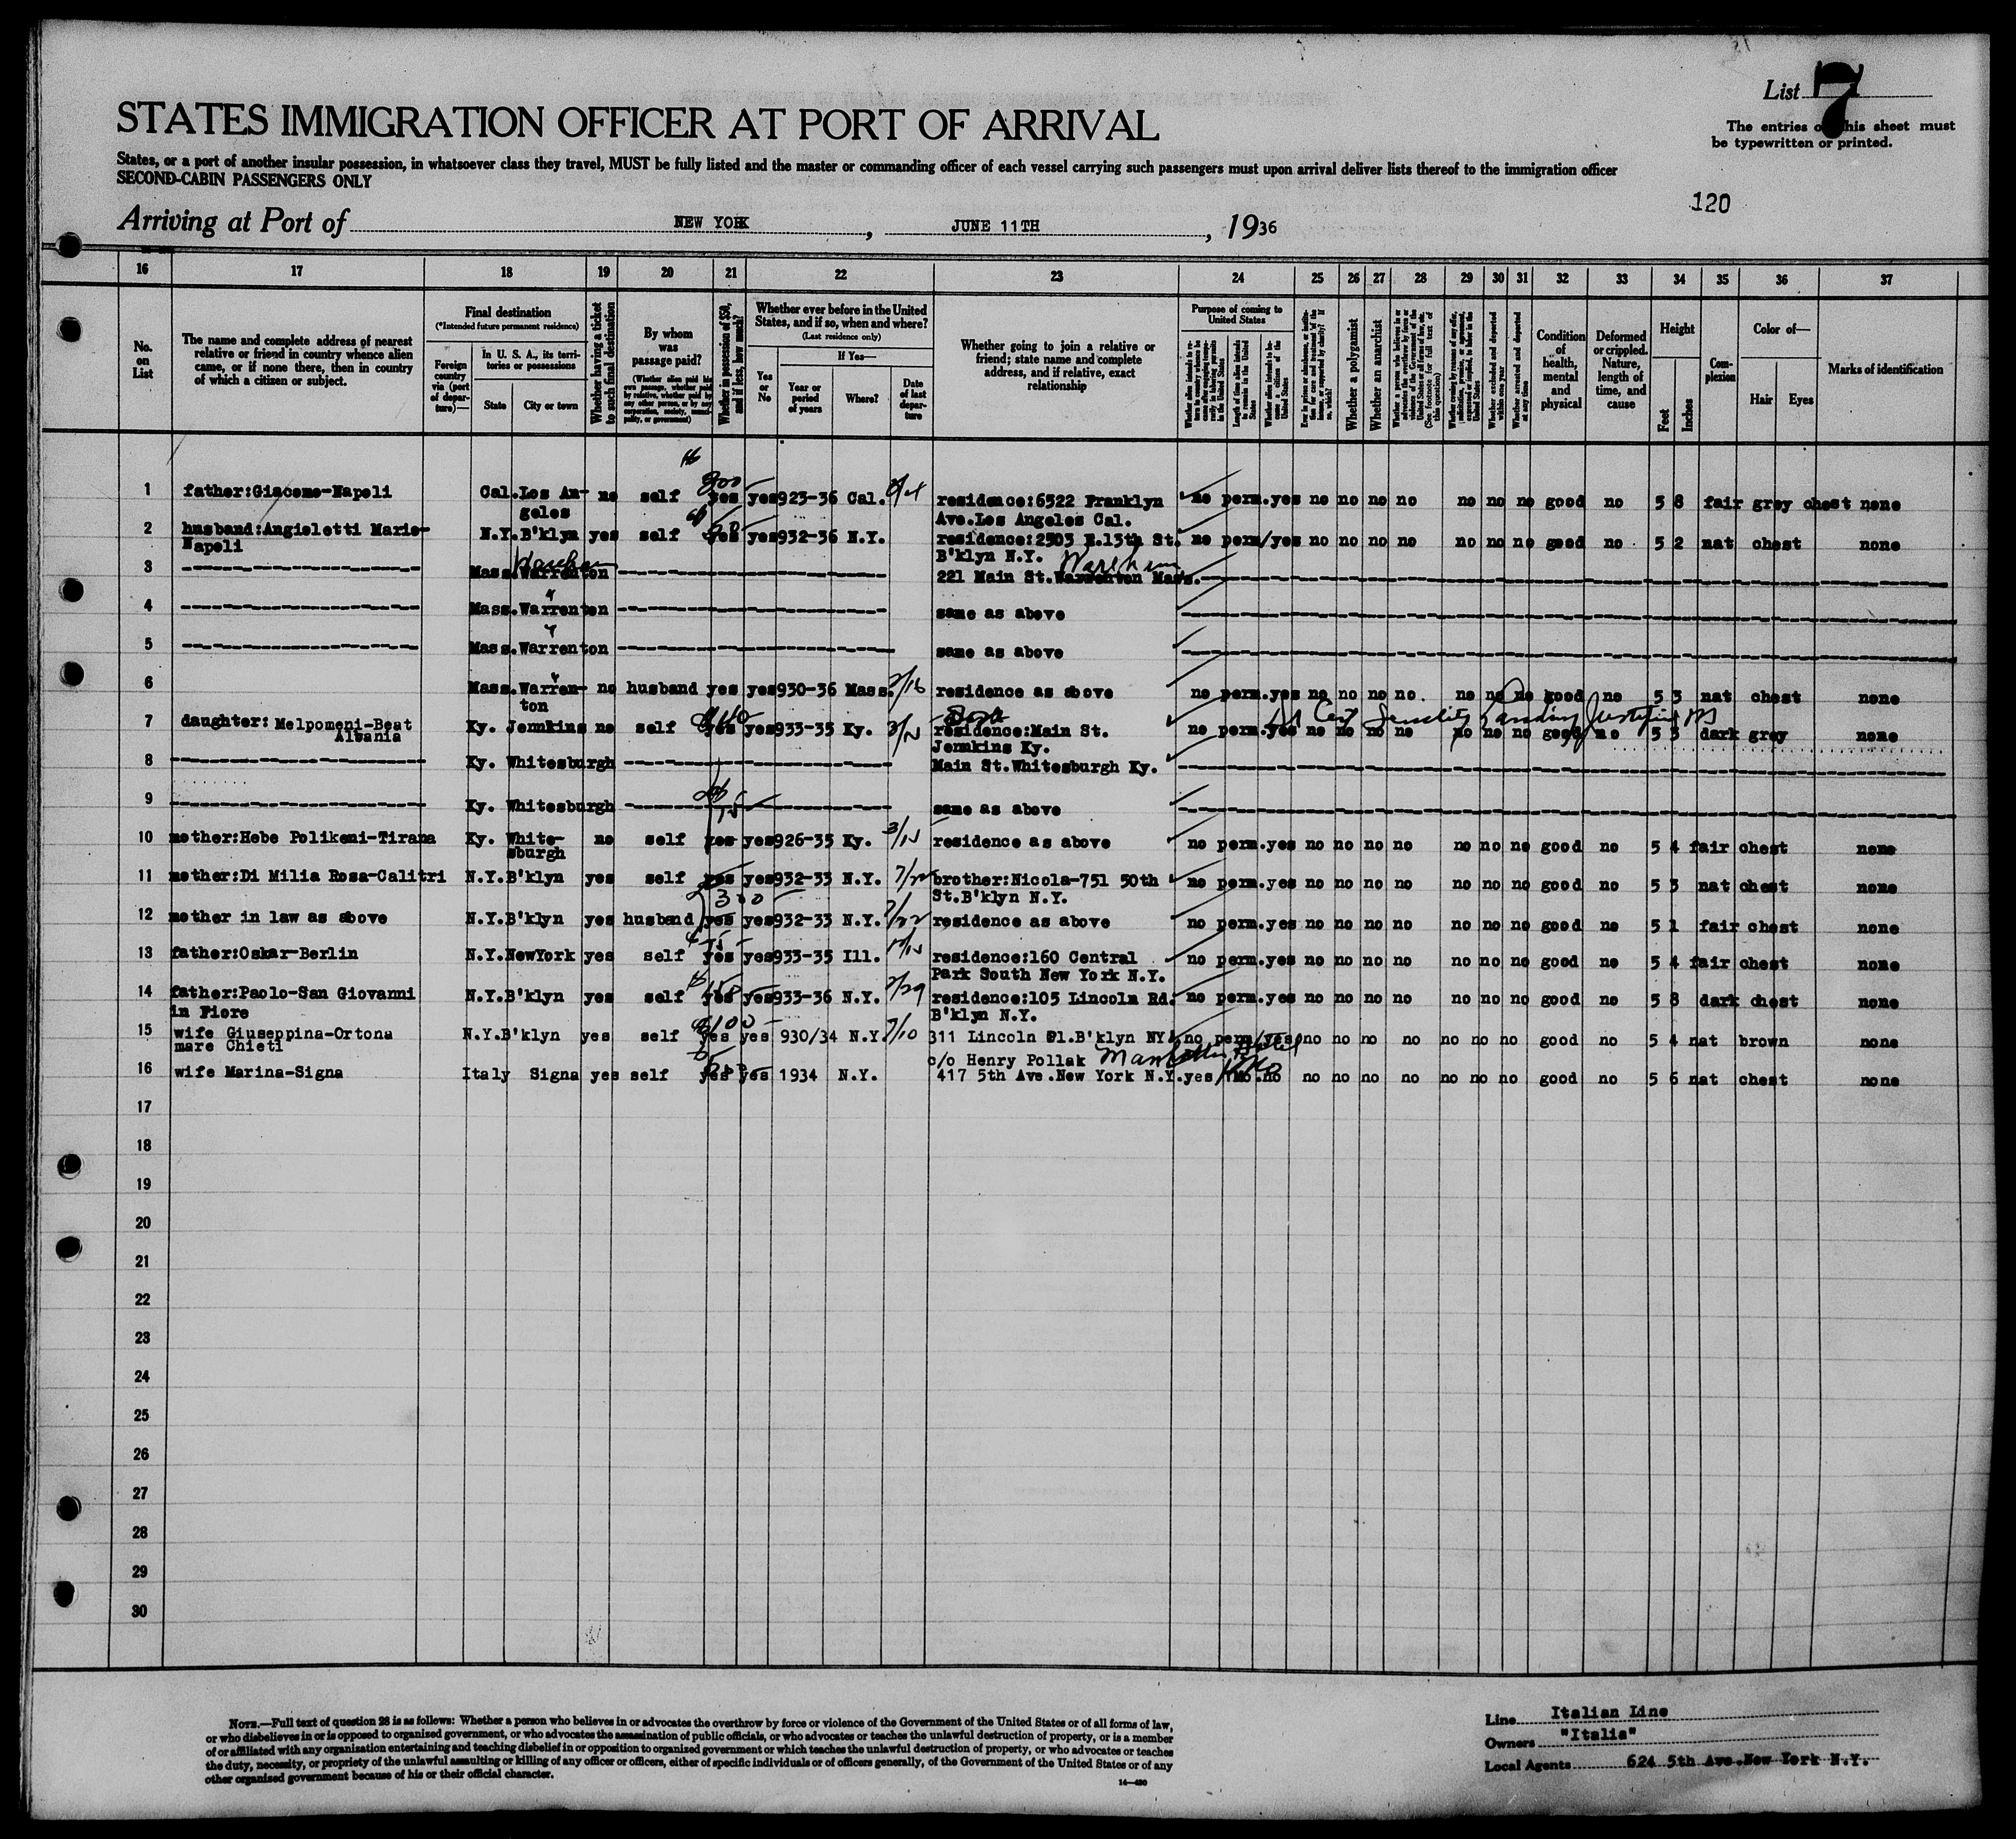 List 7
STATES IMMIGRATION OFFICER AT PORT OF ARRIVAL
The entries on this sheet must
be typewritten or printed.
States, or a port of another insular possession, in whatsoever class they travel, MUST be fully listed and the master or commanding officer of each vessel carrying such passengers must upon arrival deliver lists thereof to the immigration officer
SECOND-CABIN PASSENGERS ONLY
120
Arriving at Port of NEW YORK, JUNE 11TH, 1936
16 17 18 19 20 21 22 23 24 25 26 27 28 29 30 31 32 33 34 35 36 37
No. on List
The name and complete address of nearest relative or friend in country whence alien came, or if none there, then in country of which a citizen or subject.
Final destination
(*Intended future permanent residence)
Foreign country via (port of departure)—
In U. S. A., its territories or possessions
State
City or town
Whether having a ticket to such final destination
By whom was passage paid?
(Whether alien paid his own passage, whether paid by relative, whether paid by any other person, or by any corporation, society, municipality, or government)
Whether in possession of $50, and if less, how much?
Whether ever before in the United States, and if so, when and where?
(Last residence only)
Yes or No
If Yes—
Year or period of years
Where?
Date of last departure
Whether going to join a relative or friend; state name and complete address, and if relative, exact relationship
Purpose of coming to United States
Length of time alien intends to remain in the United States
Whether alien intends to become a citizen of the United States
Whether a polygamist
Whether an anarchist
Whether excluded and deported within one year
Whether arrested and deported at any time
Condition of health, mental and physical
Deformed or crippled. Nature, length of time, and cause
Height
Feet
Inches
Complexion
Color of—
Hair
Eyes
Marks of identification
1 father:Giacomo-Napoli Cal. Los An- no self 800 yes yes 923-36 Cal. residence:6522 Franklyn no perm. yes no no no no no no no good no 5 8 fair grey chest none
geles Ave.Los Angeles Cal.
2 husband:Angieletti Mario- N.Y. B'klyn yes self yes yes 932-36 N.Y. residence:2503 E.13th St. no perm/yes no no no no no no no good no 5 2 nat chest none
Napoli B'klyn N.Y. Wareham
3 Mass. Warrenton 221 Main St.Warrenton Mass.
4 Mass. Warrenton same as above
5 Mass. Warrenton same as above
6 Mass. Warren- no husband yes yes 930-36 Mass. 2/16 residence as above no perm. yes no no no no no no no good no 5 3 nat chest none
ton
7 daughter: Melpomeni-Beat Ky. Jennkins no self yes yes 933-35 Ky. residence:Main St. no perm. yes no no no no no no no good no 5 3 dark grey none
Albania Jennkins Ky.
Senility Landing Justified
8 Ky. Whitesburgh Main St.Whitesburgh Ky.
9 Ky. Whitesburgh same as above
10 mother:Hebe Polikeni-Tirana Ky. White- no self yes yes 926-35 Ky. residence as above no perm. yes no no no no no no no good no 5 4 fair chest none
sburgh
11 mother:Di Milia Rosa-Calitri N.Y. B'klyn yes self yes yes 932-33 N.Y. 7/22 brother:Nicola-751 50th no perm. yes no no no no no no no good no 5 3 nat chest none
300 St.B'klyn N.Y.
12 mother in law as above N.Y. B'klyn yes husband yes yes 932-33 N.Y. 7/22 residence as above no perm. yes no no no no no no no good no 5 1 fair chest none
13 father:Oskar-Berlin N.Y. NewYork yes self yes yes 933-35 Ill. residence:160 Central no perm. yes no no no no no no no good no 5 4 fair chest none
Park South New York N.Y.
14 father:Paolo-San Giovanni N.Y. B'klyn yes self yes yes 933-36 N.Y. 2/29 residence:105 Lincoln Rd. no perm. yes no no no no no no no good no 5 8 dark chest none
in Fiore B'klyn N.Y.
15 wife Giuseppina-Ortona N.Y. B'klyn yes self $100 yes yes 930/34 N.Y. 7/10 311 Lincoln Pl.B'klyn NY no perm/yes no no no no no no no good no 5 4 nat brown none
mare Chieti c/o Henry Pollak Hotel
16 wife Marina-Signa Italy Signa yes self yes yes 1934 N.Y. 417 5th Ave.New York N.Y. yes no no no no no no no no good no 5 6 nat chest none
17
18
19
20
21
22
23
24
25
26
27
28
29
30
NOTE.—Full text of question 28 is as follows: Whether a person who believes in or advocates the overthrow by force or violence of the Government of the United States or of all forms of law,
or who disbelieves in or is opposed to organized government, or who advocates the assassination of public officials, or who advocates or teaches the unlawful destruction of property, or is a member
of or affiliated with any organization entertaining and teaching disbelief in or opposition to organized government or which teaches the unlawful destruction of property, or who advocates or teaches
the duty, necessity, or propriety of the unlawful assaulting or killing of any officer or officers, either of specific individuals or of officers generally, of the Government of the United States or of any
other organized government because of his or their official character.
14—480
Line Italian Line
Owners "Italia"
Local Agents 624 5th Ave.New York N.Y.